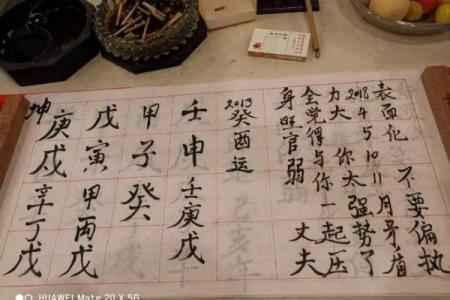 坤
庚戌 辛丁戊
戊寅 甲丙戊
甲子 癸
壬申 壬庚戊
2013 癸酉运
身旺官弱 丈夫
会觉得与你一起压
力大 你太强势了
2018 4 5 10 11月矛盾
表面化 不要偏执
HUAWEI Mate 20 X 5G